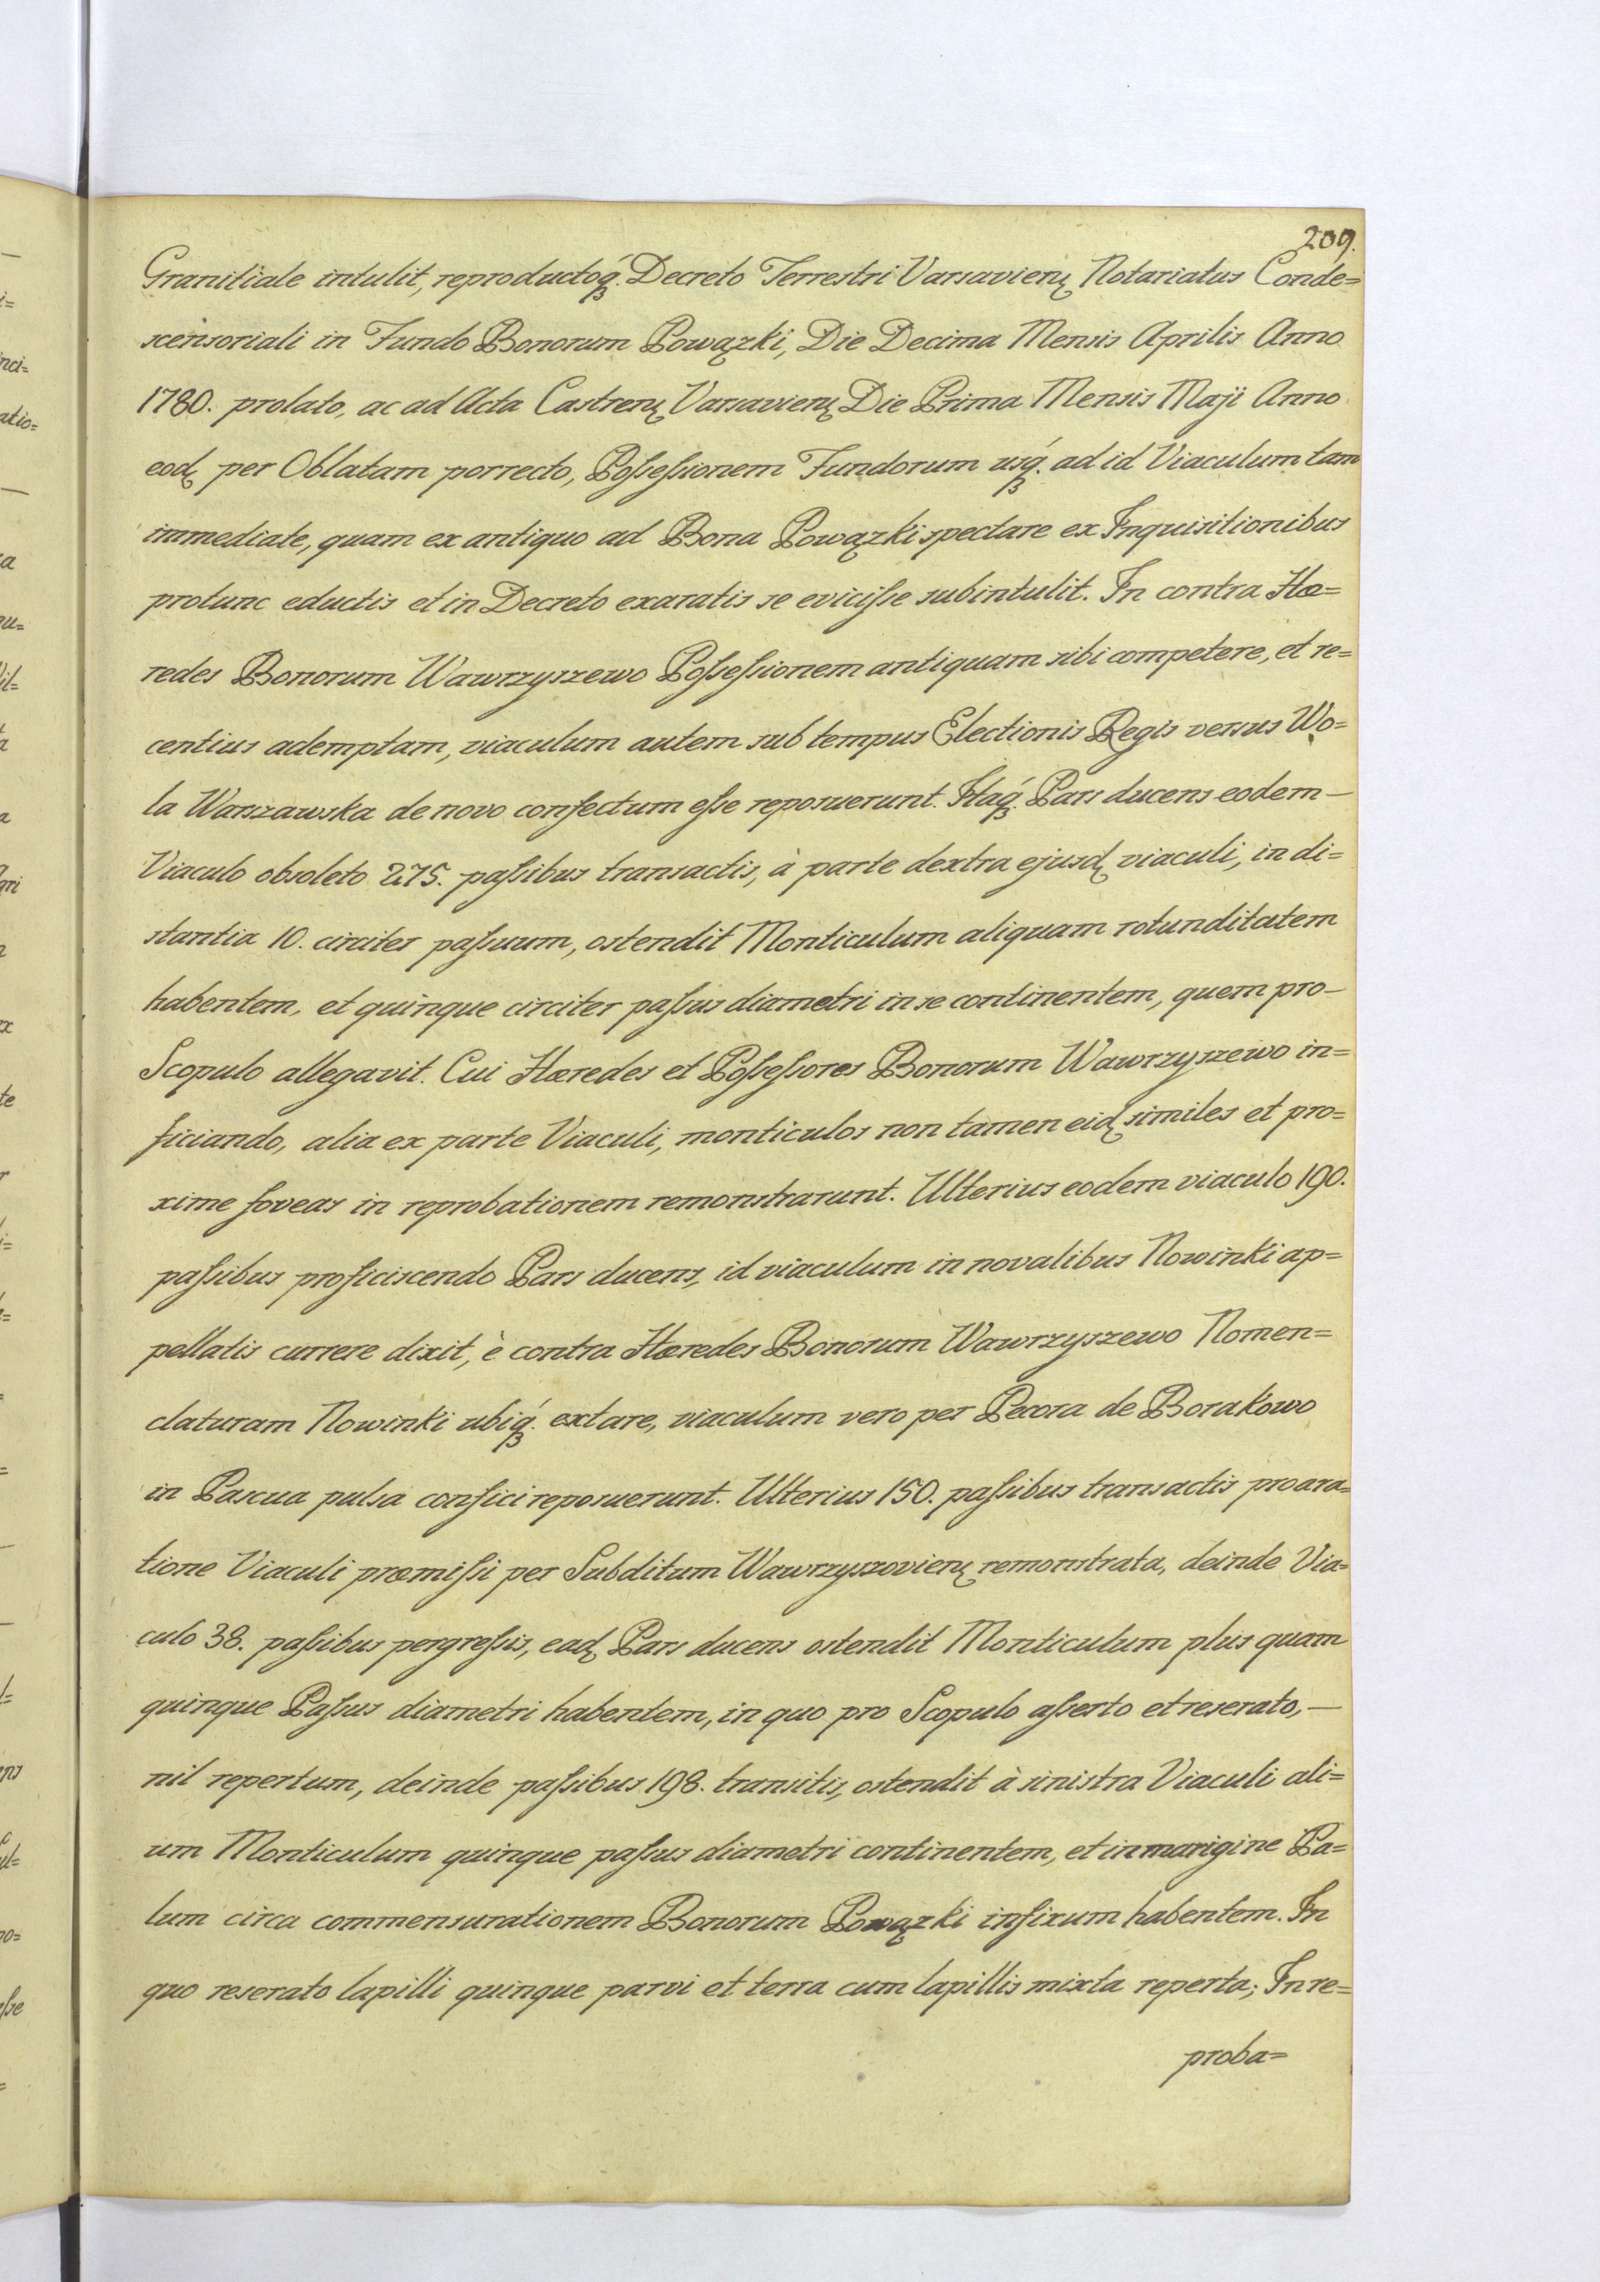 209.
Granitiale intulit, reproductoq́ꝫ. Decreto Terrestri Varsavienꝝ Notariatus Conde=
scensoriali in Fundo Bonorum Powązki, Die Decima Mensis Aprilis Anno
1780. prolato, ac ad Acta Castrenꝝ Varsavienꝝ Die Prima Mensis Maji Anno
eodꝝ per Oblatam porrecto, Poſseſsionem Fundorum usq́ꝫ. ad id Viaculum tam
immediate, quam ex antiquo ad Bona Powązki spectare ex Inquisitionibus
protunc eductis et in Decreto exaratis se eviciſse subintulit. In contra Hæ=
redes Bonorum Wawrzyszewo Poſseſsionem antiquam sibi competere, et re=
centius ademptam, viaculum autem sub tempus Electionis Regis versus Wo=
la Warszawska de novo confectum eſse reposuerunt. Itaq́ꝫ. Pars ducens eodem —
Viaculo obsoleto 275. paſsibus transactis, à parte dextra ejusdꝝ viaculi, in di=
stantia 10. circiter paſsuum, ostendit Monticulum aliquam rotunditatem
habentem, et quinque circiter paſsus diametri in se continentem, quem pro —
Scopulo allegavit. Cui Hæredes et Poſseſsores Bonorum Wawrzyszewo in=
ficiando, alia ex parte Viaculi, monticulos non tamen eidꝝ similes et pro=
xime foveas in reprobationem remonstrarunt. Ulterius eodem viaculo 190.
paſsibus proficiscendo Pars ducens, id viaculum in novalibus Nowinki ap=
pellatis currere dixit, è contra Hæredes Bonorum Wawrzyszewo Nomen=
claturam Nowinki ubiq́ꝫ. extare, viaculum vero per Pecora de Borakowo
in Pascua pulsa confici reposuerunt. Ulterius 150. paſsibus transactis proara=
tione Viaculi præmiſsi per Subditum Wawrzyszovienꝝ remonstrata, deinde Via=
culo 38. paſsibus pergreſsis, eadꝝ Pars ducens ostendit Monticulum plus quam
quinque Paſsus diametri habentem, in quo pro Scopulo aſserto et reserato, —
nil repertum, deinde paſsibus 198. transitis, ostendit à sinistra Viaculi ali=
um Monticulum quinque paſsus diametri continentem, et in marigine Pa=
lum circa commensurationem Bonorum Powązki infixum habentem. In
quo reserato lapilli quinque parvi et terra cum lapillis mixta reperta; In re=
proba=